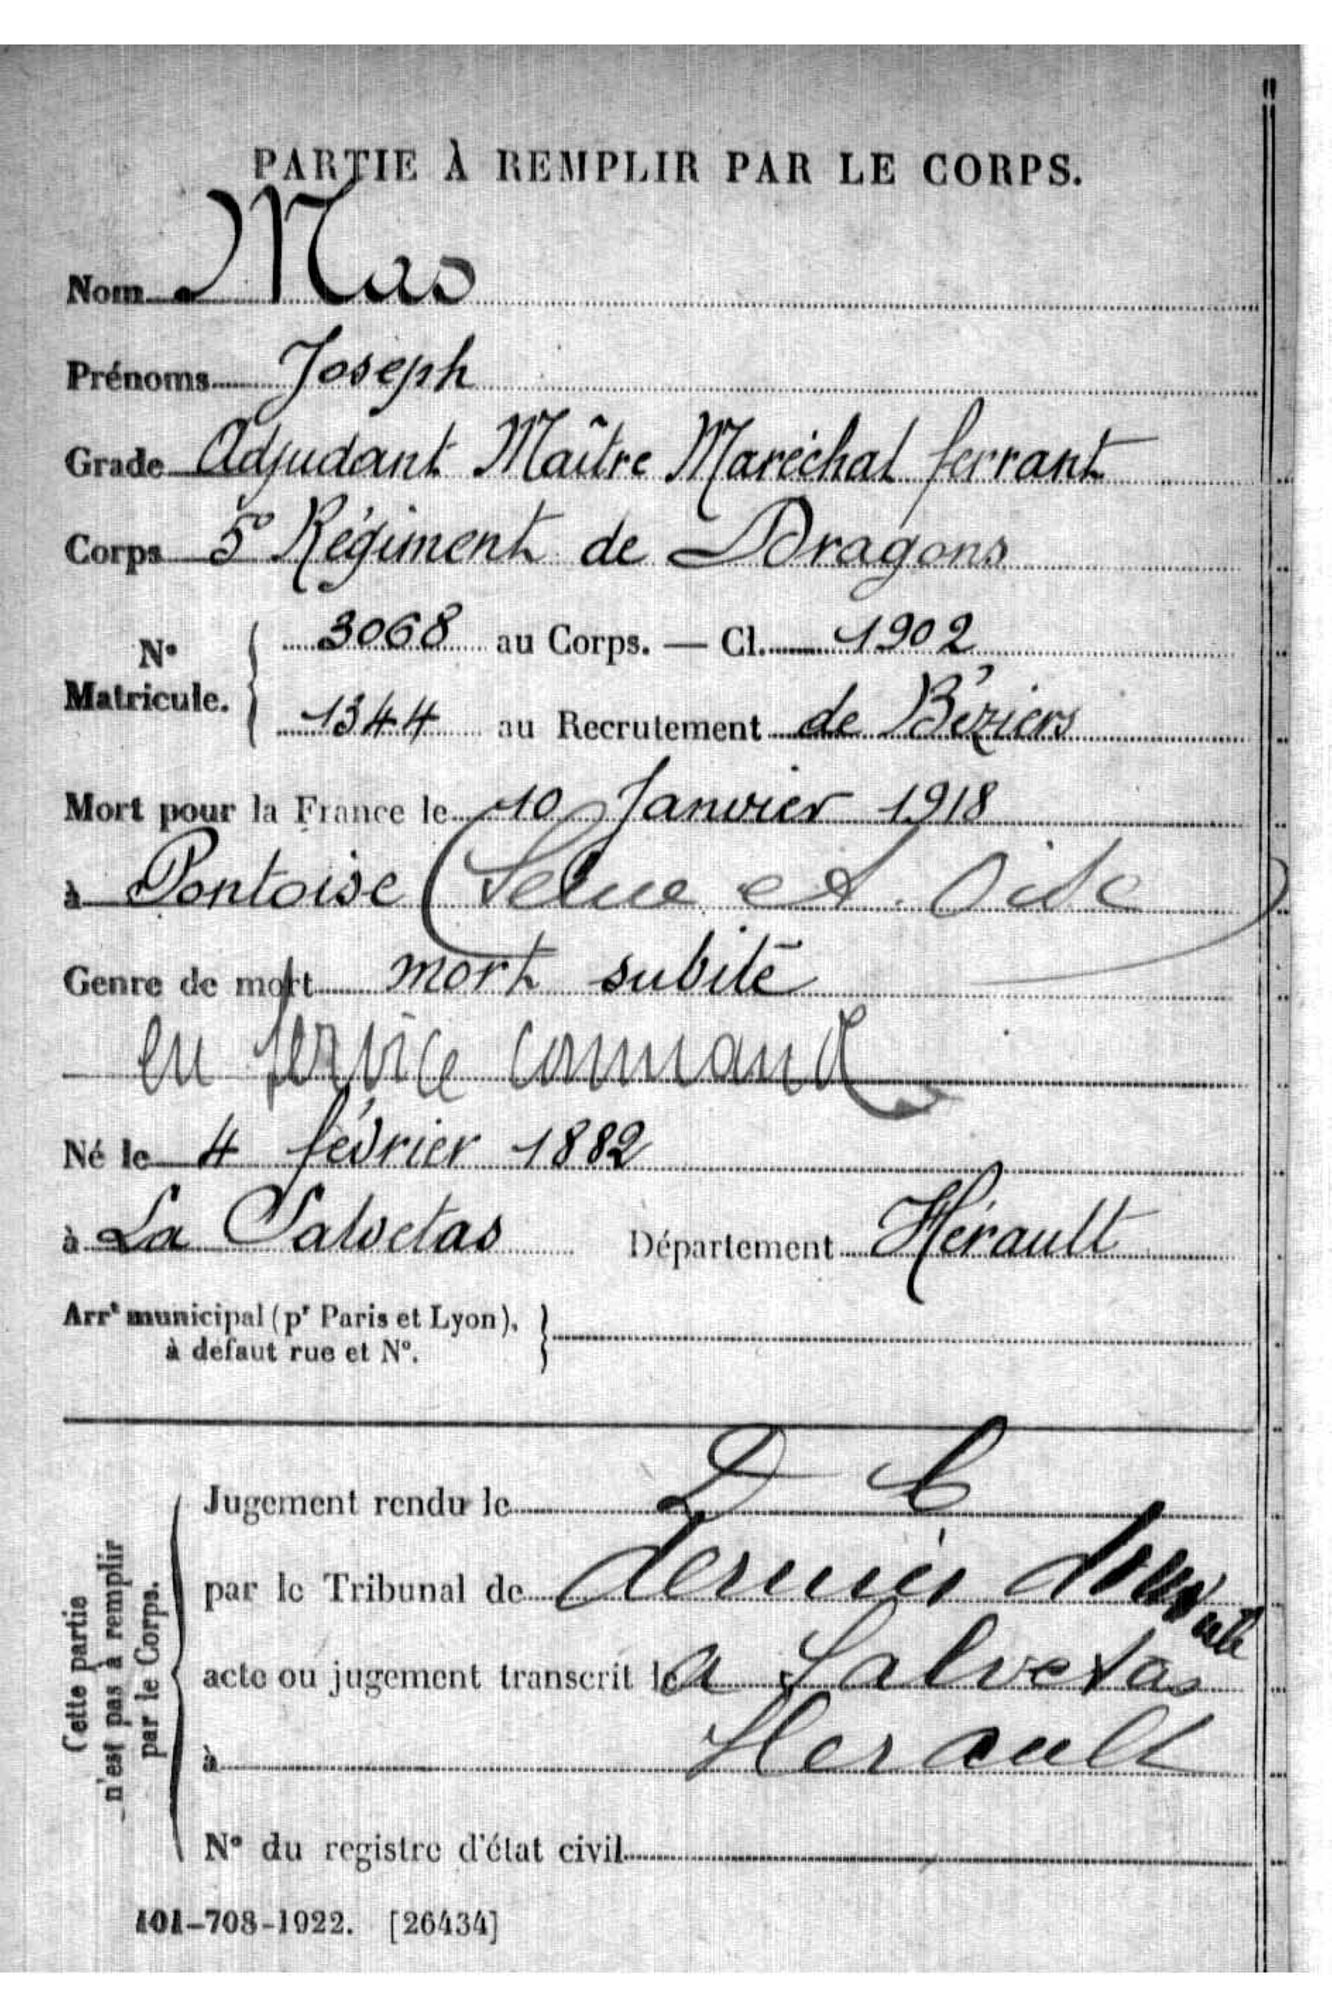 PARTIE À REMPLIR PAR LE CORPS.
Nom Mas
Prénoms Joseph
Grade Adjudant Maître Maréchal ferrant
Corps 5e Régiment de Dragons
No Matricule. 3068 au Corps. — Cl. 1902
1344 au Recrutement de Béziers
Mort pour la France le 10 Janvier 1918
à Pontoise (Seine et Oise)
Genre de mort mort subite
en service commandé
Né le 4 février 1882
à La Salvetas Département Hérault
Arrt municipal (pr Paris et Lyon),
à défaut rue et No.
Cette partie
n'est pas à remplir
par le Corps.
Jugement rendu le D C
par le Tribunal de dernier domicile
acte ou jugement transcrit le a Salvetas
à Herault
No du registre d'état civil
101-708-1922. [26434]